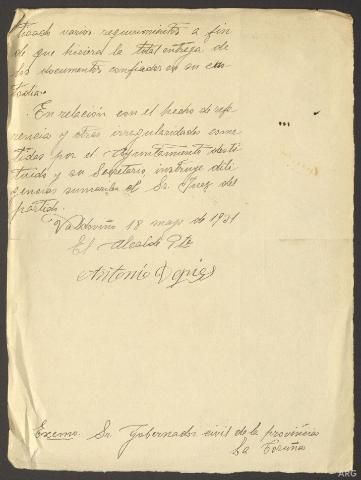 ticado varios requerimientos a fin
de que hiciera la total entrega de
los documentos confiados en su cus-
todia.
En relación con el hecho de refe-
rencia y otras irregularidades come-
tidas por el Ayuntamiento desti-
tuido y su Secretario, instruye dili-
gencias sumariales el Sr. Juez del
partido.
Valdoviño 18 mayo de 1931
El Alcalde Pte
Antonio
Excmo. Sr. Gobernador civil de la provincia
La Coruña
ARG